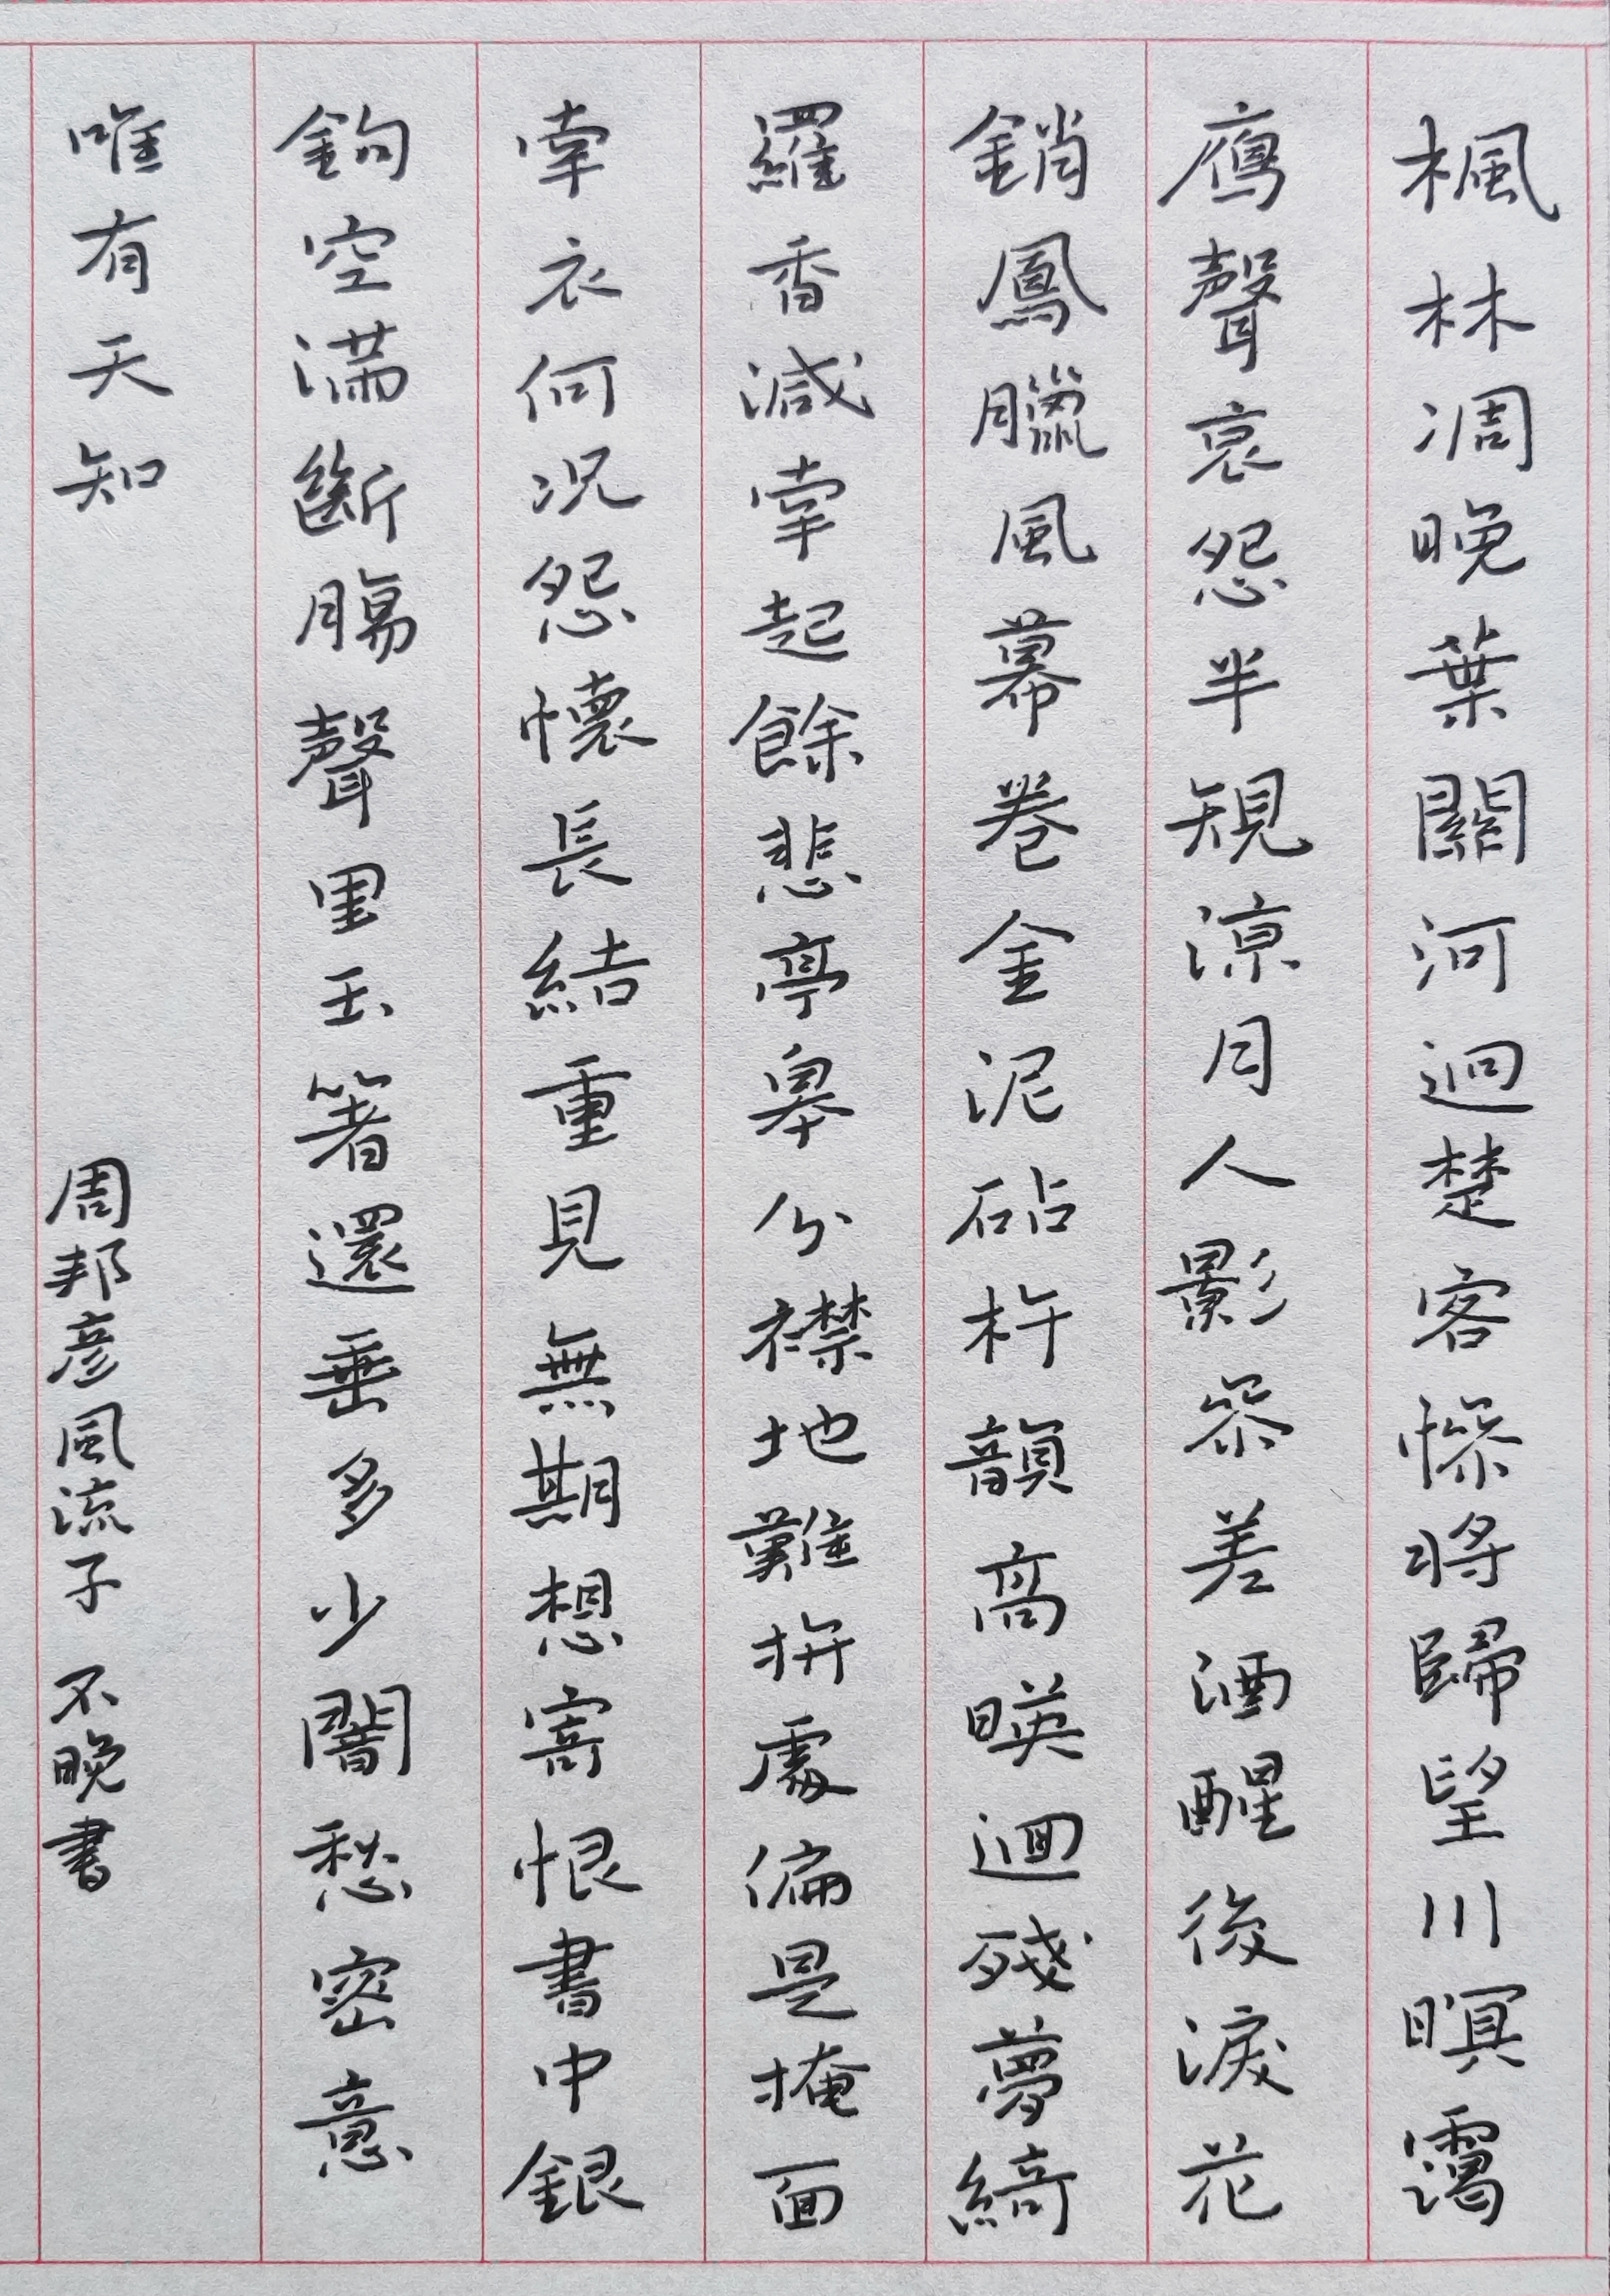 楓林凋晚葉關河迥楚客慘將歸望川暝靄
鴈聲哀怨半規涼月人影參差酒醒後淚花
銷鳳臘風幕卷金泥砧杵韻高暎迴殘夢綺
羅香減牽起餘悲亭皋分襟地難拚處偏是掩面
牽衣何况怨懷長結重見無期想寄恨書中銀
鉤空滿斷腸聲里玉箸還垂多少闇愁密意
唯有天知
周邦彦風流子 不晚書